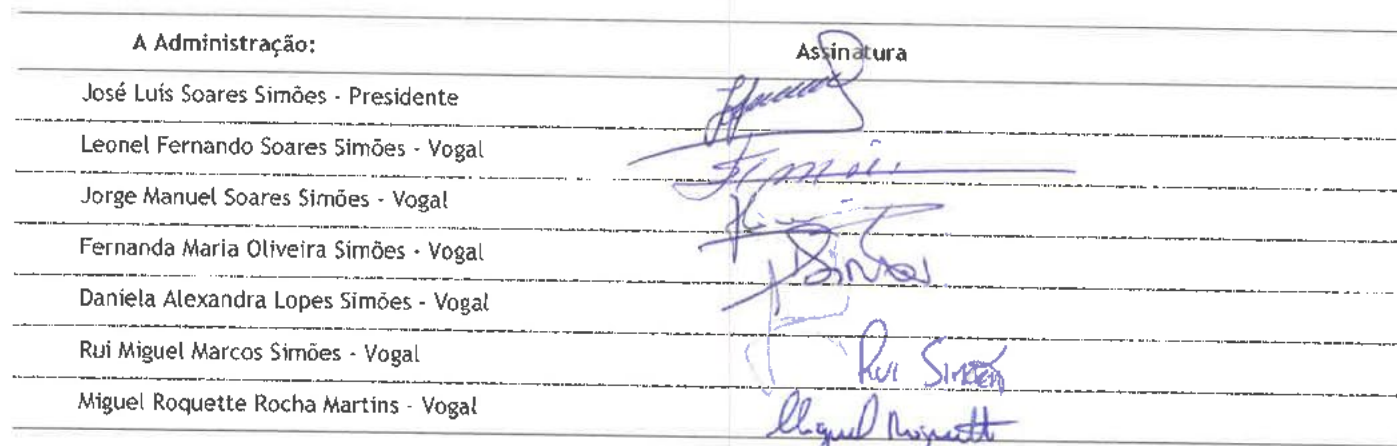 A Administração: Assinatura
José Luís Soares Simões - Presidente
Leonel Fernando Soares Simões - Vogal
Jorge Manuel Soares Simões - Vogal
Fernanda Maria Oliveira Simões - Vogal
Daniela Alexandra Lopes Simões - Vogal
Rui Miguel Marcos Simões - Vogal Rui Simões
Miguel Roquette Rocha Martins - Vogal Miguel Roquette